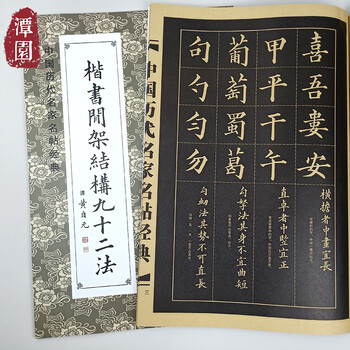 潭園
中国历代名家名帖经典
楷書間架結構九十二法
清 黄自元
中国历代名家名帖经典
喜吾婁安
甲平干午
葡萄蜀葛
句勺匀勿
橫擔者中畫宜長
直卓者中竪宜正
勾努法其身不宜曲短
勾幼法其勢不可直長
三